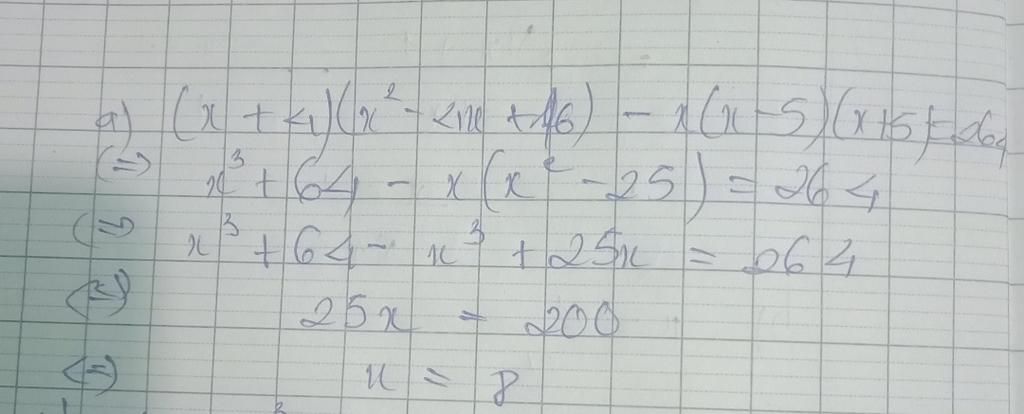 a) (x + 4)(x² - 4x + 16) - x(x - 5)(x + 5) = 264
(=) x³ + 64 - x(x² - 25) = 264
(=) x³ + 64 - x³ + 25x = 264
(=) 25x = 200
(=) x = 8